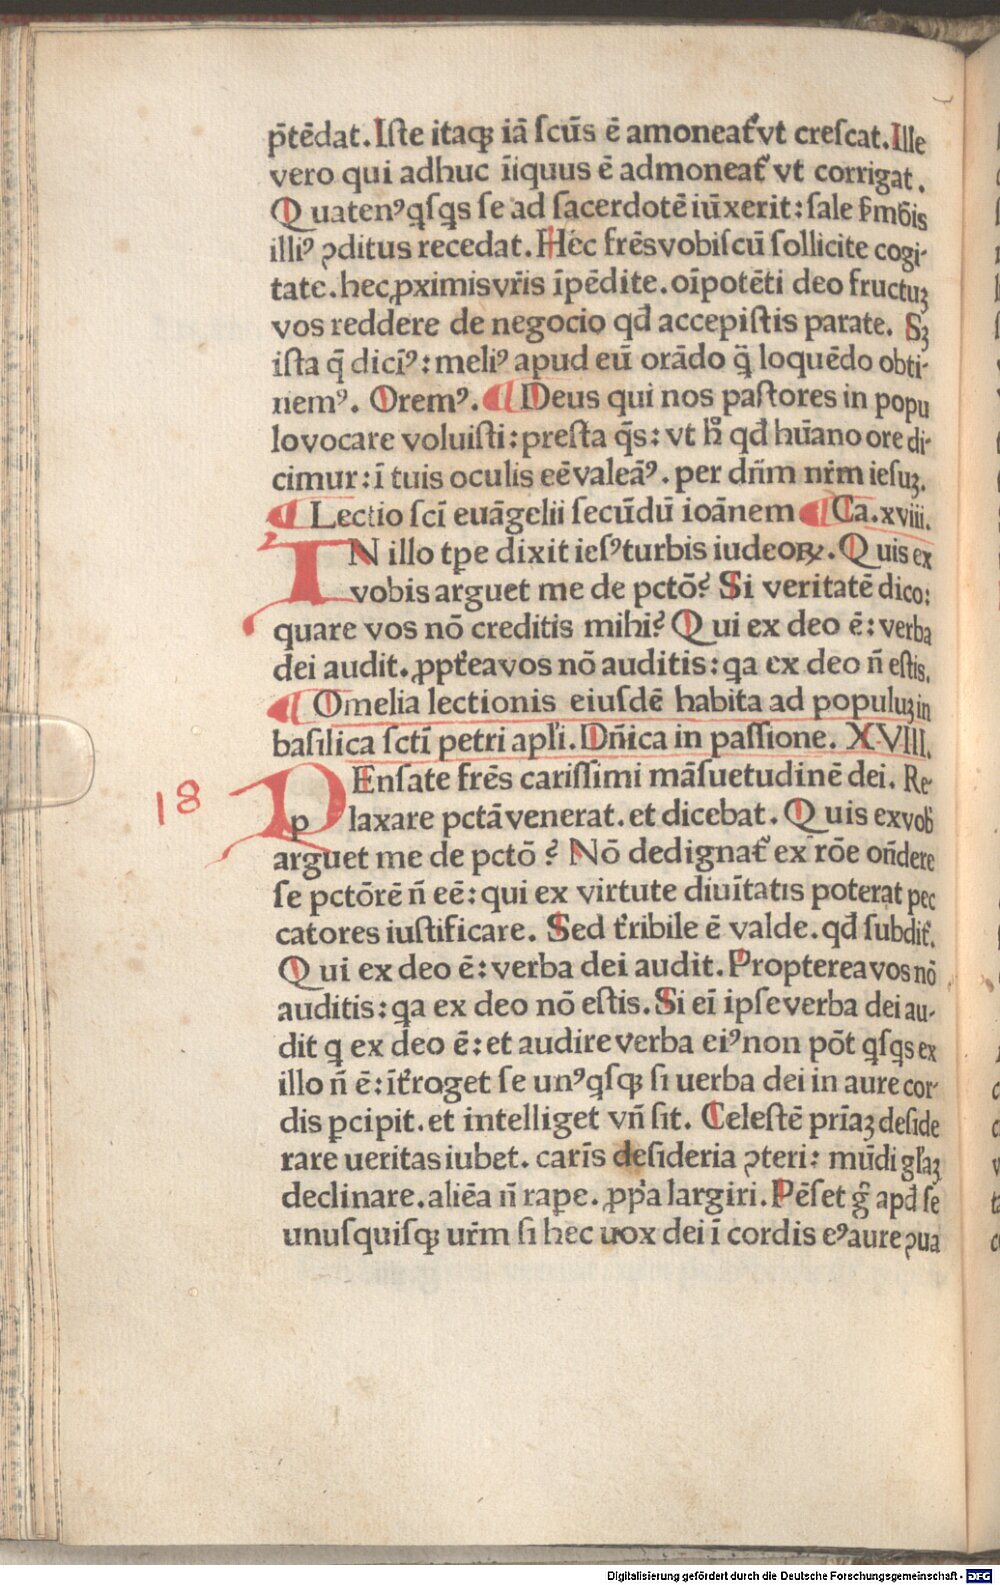 p̄tēdat. Iſte itaqꝫ iā ſcūs ē amoneat᷑ vt creſcat. Ille
vero qui adhuc īiquus ē admoneat᷑ vt corrigat.
Quatenꝰ qſqs ſe ad ſacerdotē iūxerit: ſale
illiꝰ ꝯditus recedat. Hec frēs vobiſcū ſollicite cogi-
tate. hec ꝓximis vr̄is īpēdite. oīpotēti deo fructuꝫ
vos reddere de negocio qđ accepiſtis parate. Sꝫ
iſta q̄ dicīꝰ: meliꝰ apud eū orādo q̄ loquēdo obti-
nemꝰ. Oremꝰ. ¶ Deus qui nos paſtores in popu
lo vocare voluiſti: preſta q̄s: vt h̄ qđ hūano ore di-
cimur: ī tuis oculis eē valeāꝰ. per dn̄m nr̄m ieſuꝫ.
¶ Lectio ſcī euāgelii ſecūdū ioānem ¶ Ca. xviii.
IN illo tpe dixit ieſꝰ turbis iudeoꝝ. Quis ex
vobis arguet me de pctō? Si veritatē dico:
quare vos nō creditis mihi? Qui ex deo ē: verba
dei audit. ꝓpt᷑ea vos nō auditis: qa ex deo n̄ eſtis.
¶ Omelia lectionis eiuſdē habita ad populuꝫ in
baſilica ſctī petri apl̄i. Dn̄ica in paſſione. XVIII.
18
PEnſate frēs cariſſimi māſuetudinē dei. Re-
p laxare pctā venerat. et dicebat. Quis ex vob̄
arguet me de pctō? Nō dedignat᷑ ex rōe on̄dere
ſe pctōrē n̄ eē: qui ex virtute diuītatis poterat pec
catores iuſtificare. Sed t᷑ribile ē valde. qđ ſubdit᷑.
Qui ex deo ē: verba dei audit. Propterea vos nō
auditis: qa ex deo nō eſtis. Si eī ipſe verba dei au-
dit q ex deo ē: et audire verba eiꝰ non pōt qſqs ex
illo n̄ ē: īt᷑roget ſe unꝰqſqꝫ ſi uerba dei in aure cor-
dis ꝑcipit. et intelliget vn̄ ſit. Celeſtē prīaꝫ deſide
rare ueritas iubet. carīs deſideria ꝯteri: mūdi gl̄aꝫ
declinare. aliēa n̄ rape. ꝓpa largiri. Pēſet g̊ apđ ſe
unuſquiſqꝫ ur̄m ſi hec uox dei ī cordis eꝰ aure ꝯua
Digitalisierung gefördert durch die Deutsche Forschungsgemeinschaft - DFG